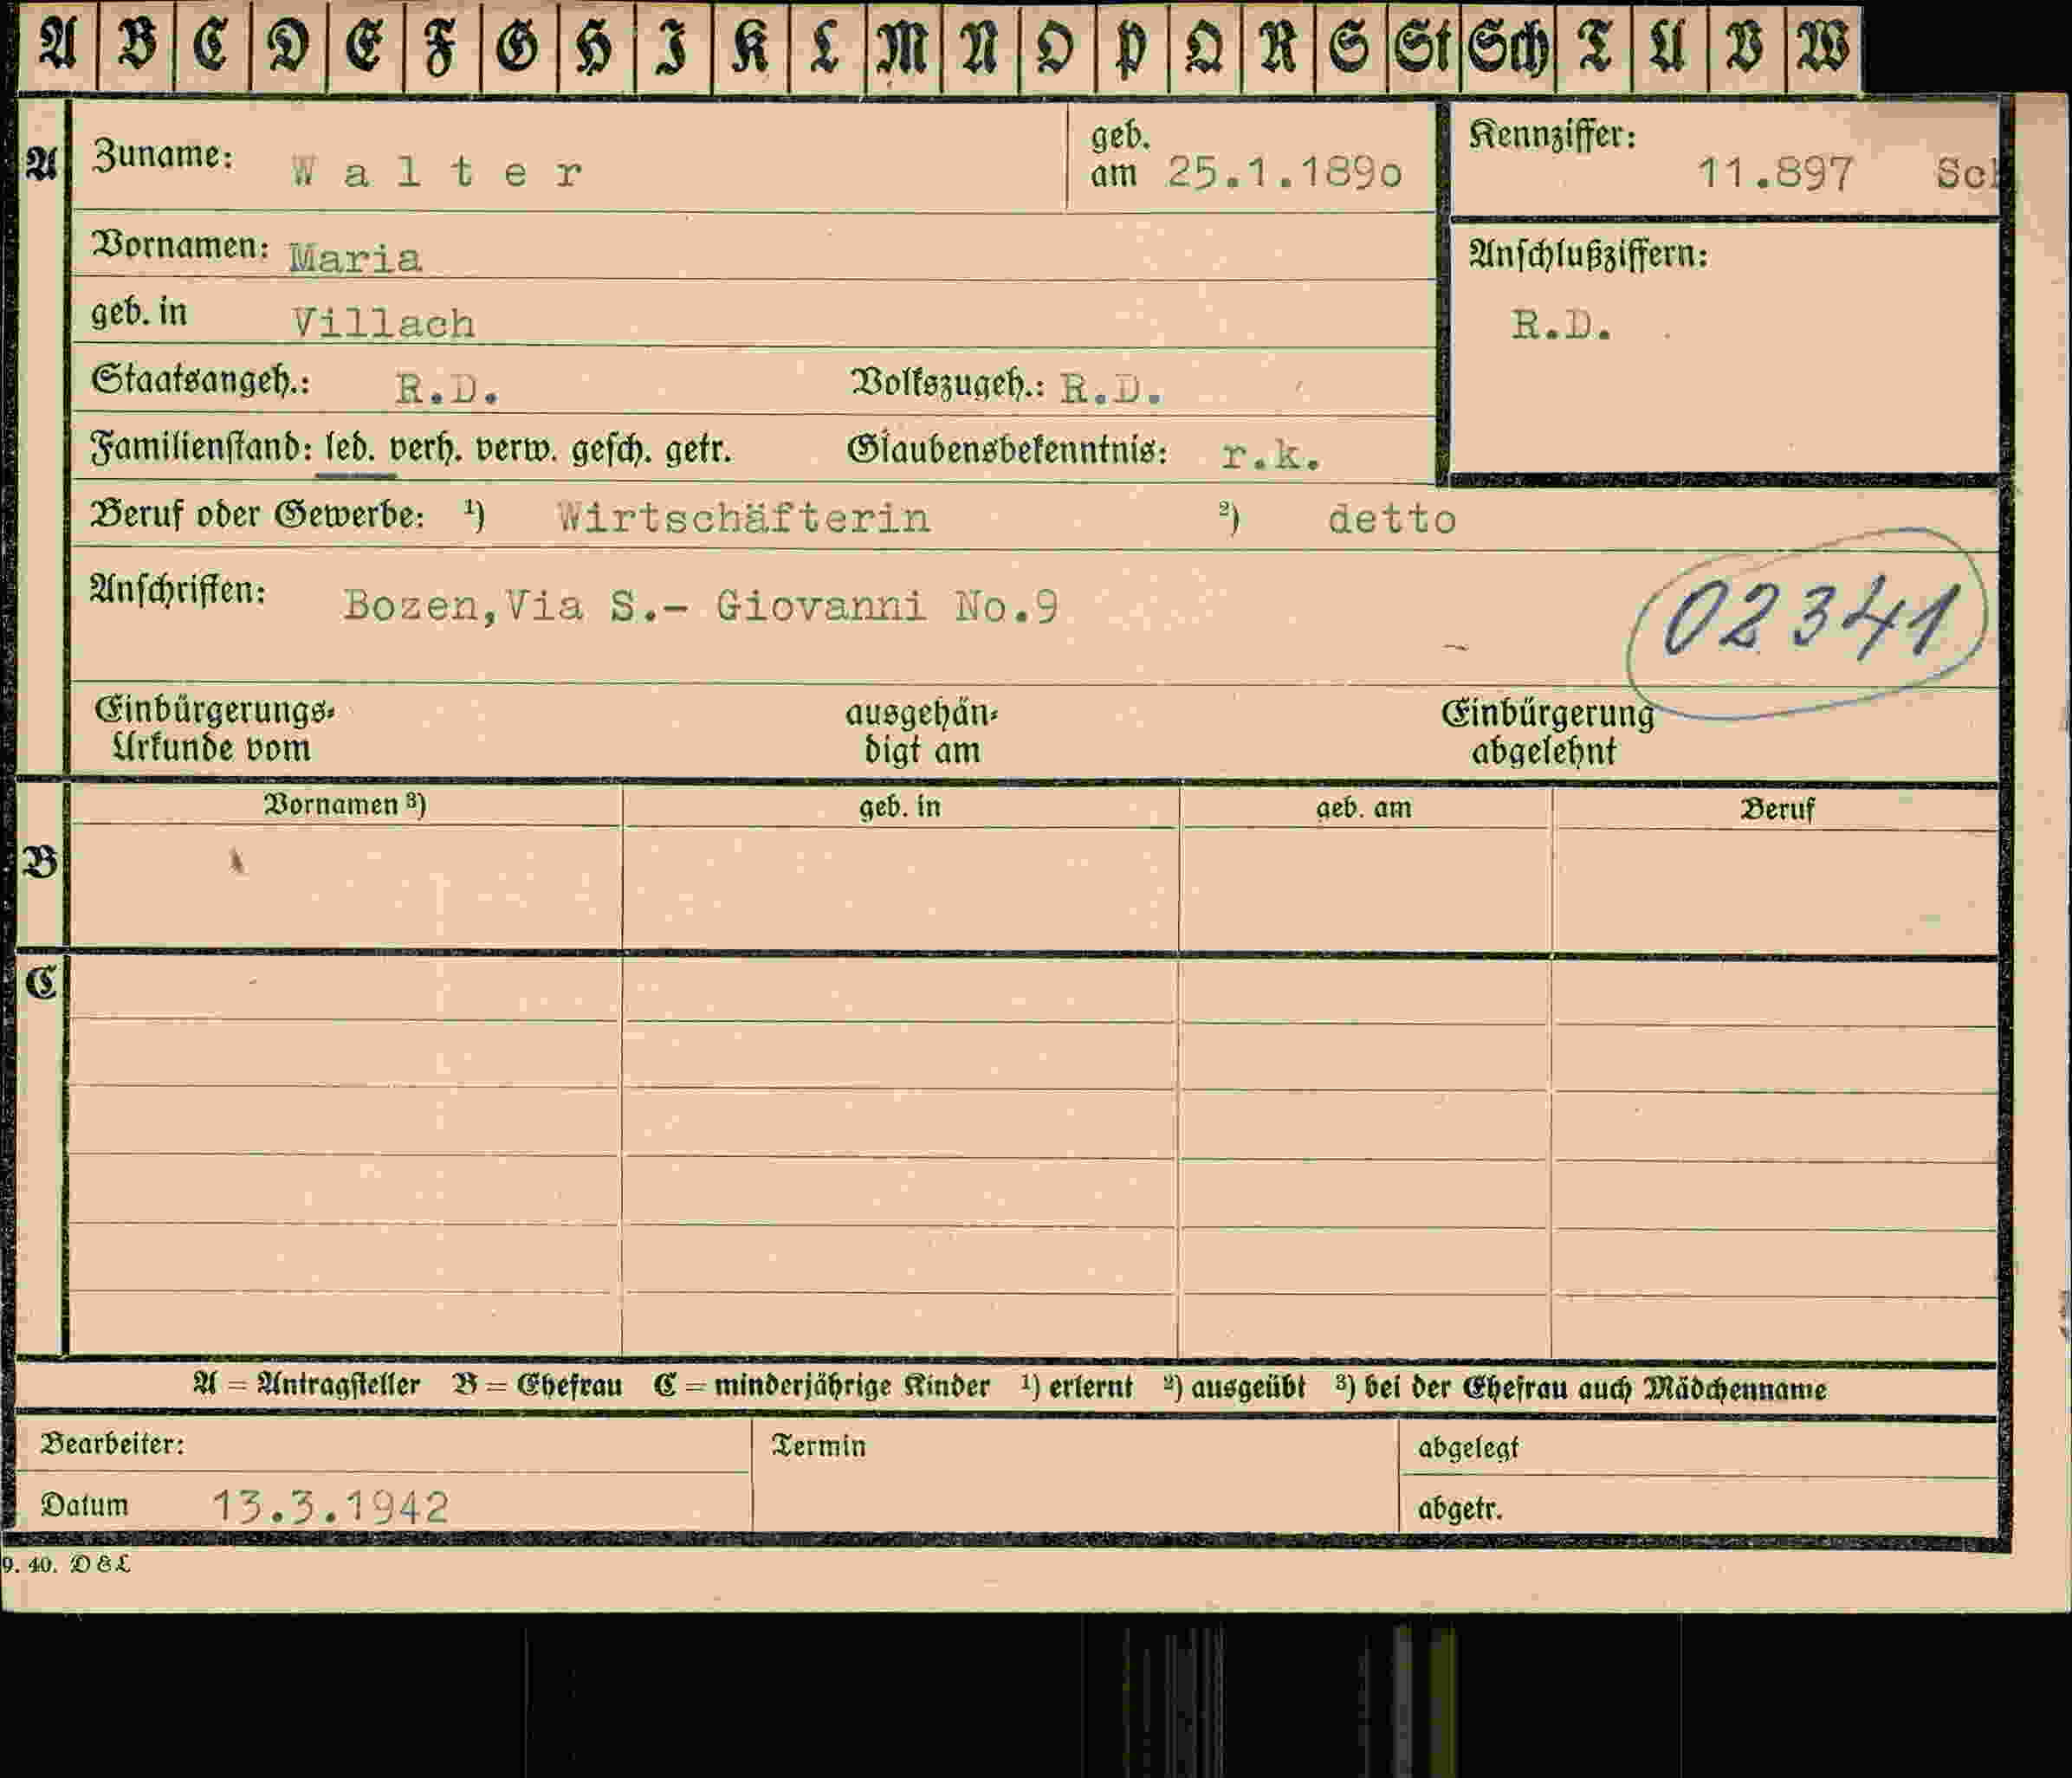 A B C D E F G H I K L M N O P Q R S St Sch T U V W
A Zuname: Walter geb. am 25.1.189o Kennziffer: 11.897
Vornamen: Maria Anschlußziffern:
geb. in Villach R.D.
Staatsangeh.: R.D. Volkszugeh.: R.D.
Familienstand: led. verh. verw. gesch. getr. Glaubensbekenntnis: r.k.
Beruf oder Gewerbe: ¹) Wirtschäfterin ²) detto
Anschriften: Bozen,Via S.- Giovanni No.9 02341
Einbürgerungs- ausgehän- Einbürgerung
Urkunde vom digt am abgelehnt
Vornamen ³) geb. in geb. am Beruf
B
C
A = Antragsteller B = Ehefrau C = minderjährige Kinder ¹) erlernt ²) ausgeübt ³) bei der Ehefrau auch Mädchenname
Bearbeiter: Termin abgelegt
Datum 13.3.1942 abgetr.
9. 40. D & L